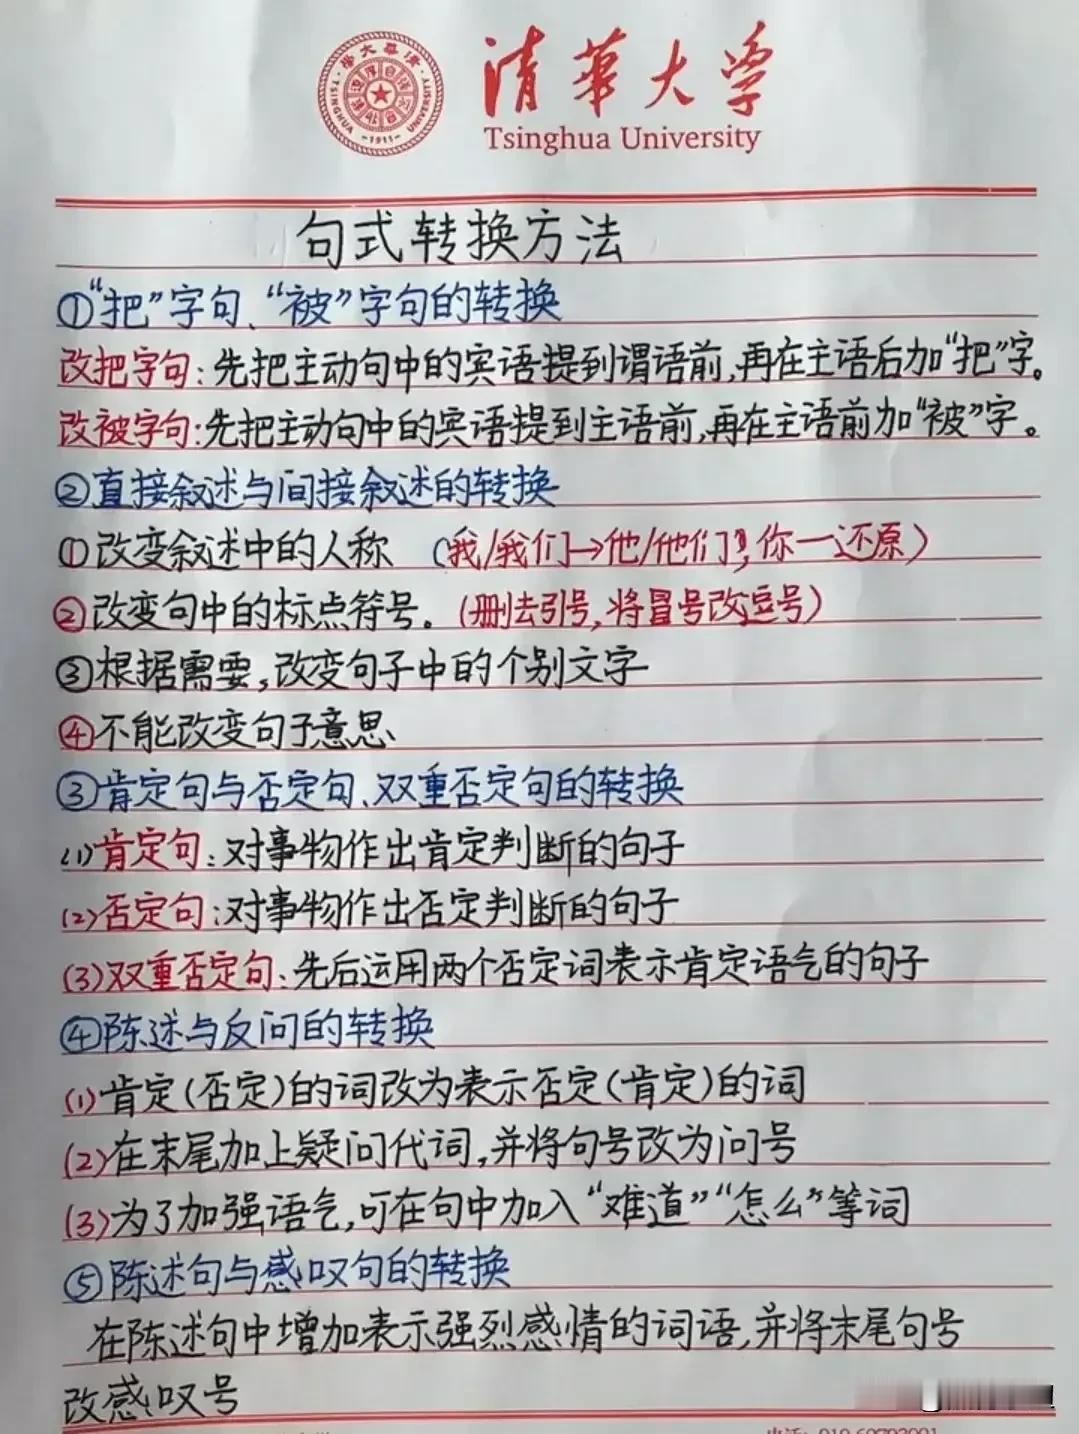 清華大学
Tsinghua University
句式转换方法
①“把”字句、“被”字句的转换
改把字句:先把主动句中的宾语提到谓语前,再在主语后加“把”字。
改被字句:先把主动句中的宾语提到主语前,再在主语前加“被”字。
②直接叙述与间接叙述的转换
①改变叙述中的人称 (我/我们→他/他们,你—还原)
②改变句中的标点符号。(删去引号,将冒号改逗号)
③根据需要,改变句子中的个别文字
④不能改变句子意思
③肯定句与否定句、双重否定句的转换
(1)肯定句:对事物作出肯定判断的句子
(2)否定句:对事物作出否定判断的句子
(3)双重否定句:先后运用两个否定词表示肯定语气的句子
④陈述与反问的转换
(1)肯定(否定)的词改为表示否定(肯定)的词
(2)在末尾加上疑问代词,并将句号改为问号
(3)为了加强语气,可在句中加入“难道”“怎么”等词
⑤陈述句与感叹句的转换
在陈述句中增加表示强烈感情的词语,并将末尾句号
改感叹号